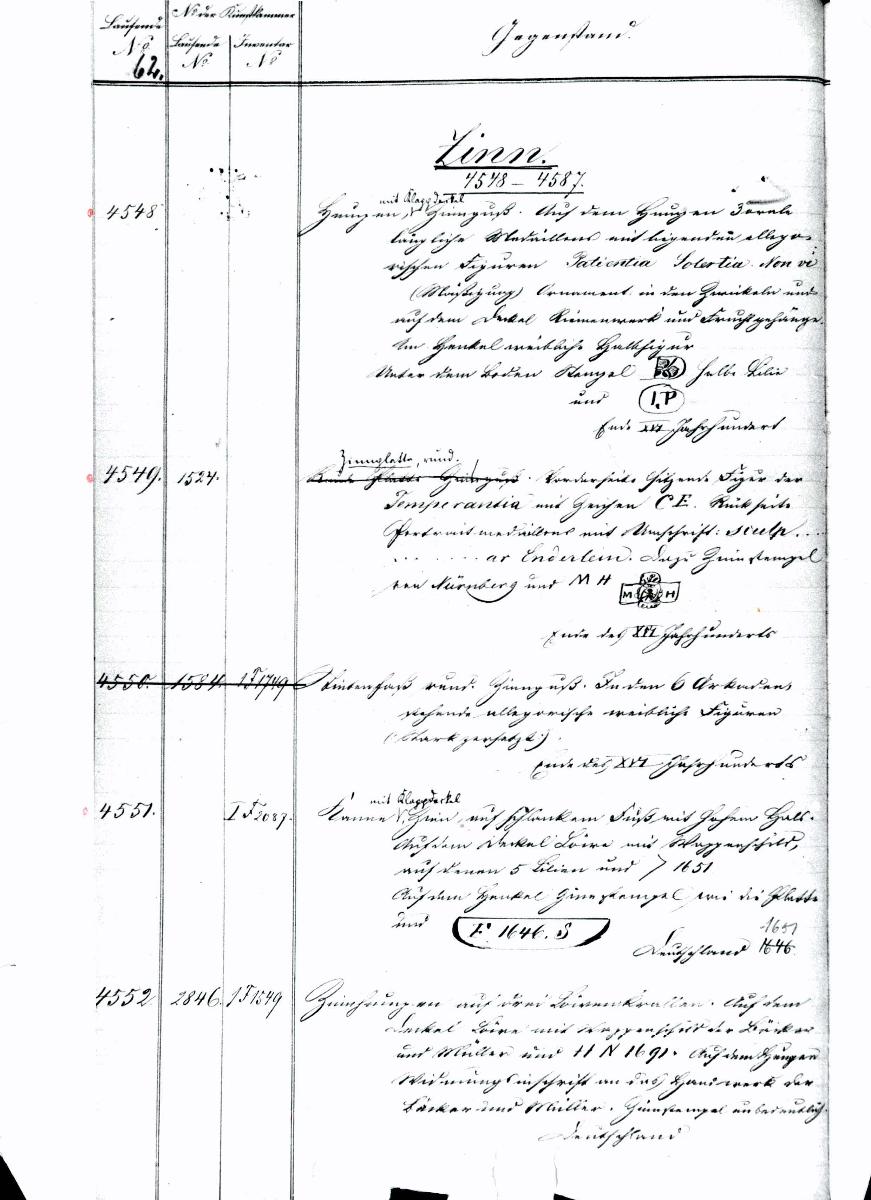 Laufende
No.
62.
No der Kunstkammer
Laufende
No.
Inventar
No
Gegenstand.
Zinn.
4548 – 4587.
mit Klappdeckel
4548 Humpen, Zinnguß. Auf dem Humpen 3 ovale
längliche Medaillons mit liegenden allego-
rischen Figuren Patientia Solertia. Non vi
(Mäßigung) Ornament in den Zwickeln und
auf dem Deckel Riemenwerk und Fruchtgehänge.
Am Henkel weibliche Halbfigur
Unter dem Boden Stempel halbe Lilie
und I.P
Ende XVI Jahrhundert
Zinnplatte, rund.
4549. 1524. Runde Platte Zinnguß. Vorderseite sitzende Figur der
Temperantia mit Zeichen C E. Rückseite
Portraitmedaillons mit Umschrift: sculp....
....... ar Enderlein. Dazu Zinnstempel
von Nürnberg und M H M H
Ende des XVI Jahrhunderts
4550. 1584. I F 1749 Tintenfaß rund. Zinnguß. In den 6 Arkaden,
stehende allegorische weibliche Figuren
(Stark zersetzt.)
Ende des XVI Jahrhunderts
mit Klappdeckel
4551. I F 2087. Kanne, Zinn, auf schlankem Fuß mit hohem Hals.
Auf dem Deckel Löwe mit Wappenschild,
auf denen 5 Lilien und 1651
Auf dem Henkel Zinnstempel, wie die Platte
und F 1646. S
1651
Deutschland 1646
4552 2846. I F 1549 Zinnhumpen auf drei Löwenkrallen. Auf dem
Deckel Löwe mit Wappenschild der Bäcker
und Müller und H N 1691. Auf dem Humpen
Widmungsinschrift an das Handwerk der
Bäcker und Müller. Zinnstempel undeutlich.
Deutschland